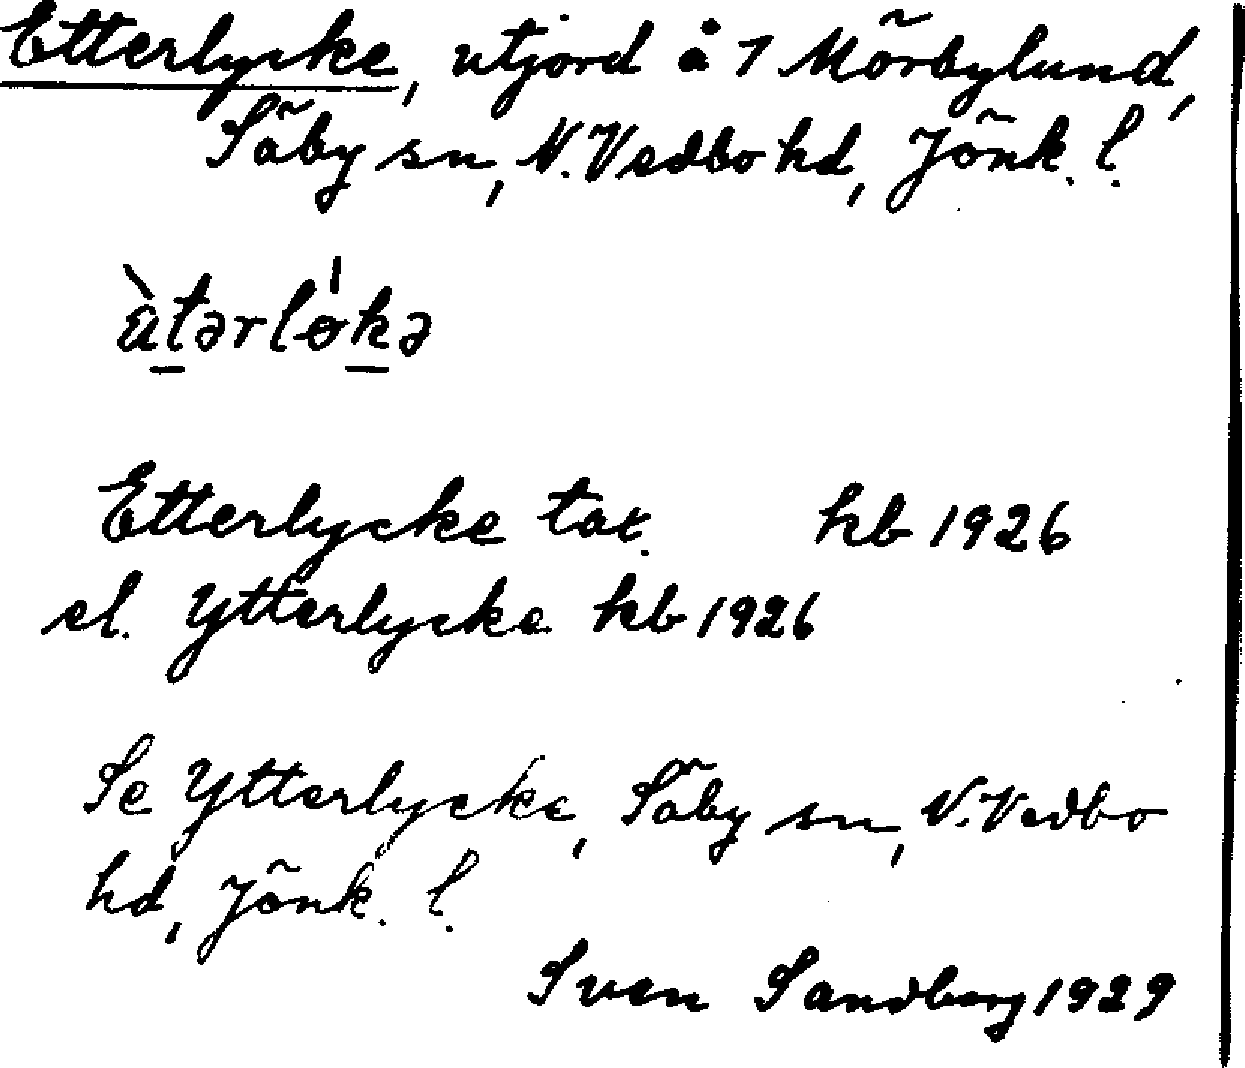 Etterlycke, utjord å 1 Mörbylund,
Säby sn, N. Vedbo hd, Jönk. l.
Etterlycke tax. hb 1926
el. Ytterlycke hb 1926
Se Ytterlycke, Säby sn, N. Vedbo
hd, Jönk. l.
Sven Sandberg 1929